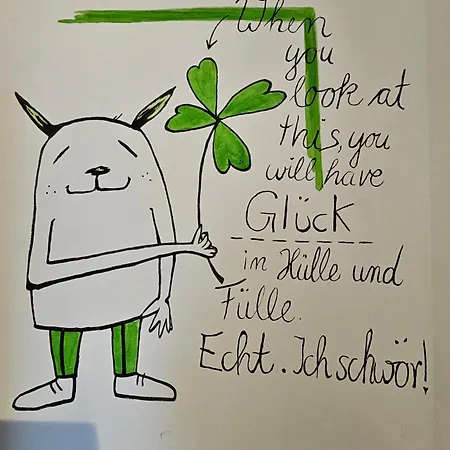 When
you
look at
this, you
will have
Glück
in Hülle und
Fülle.
Echt. Ich schwör!